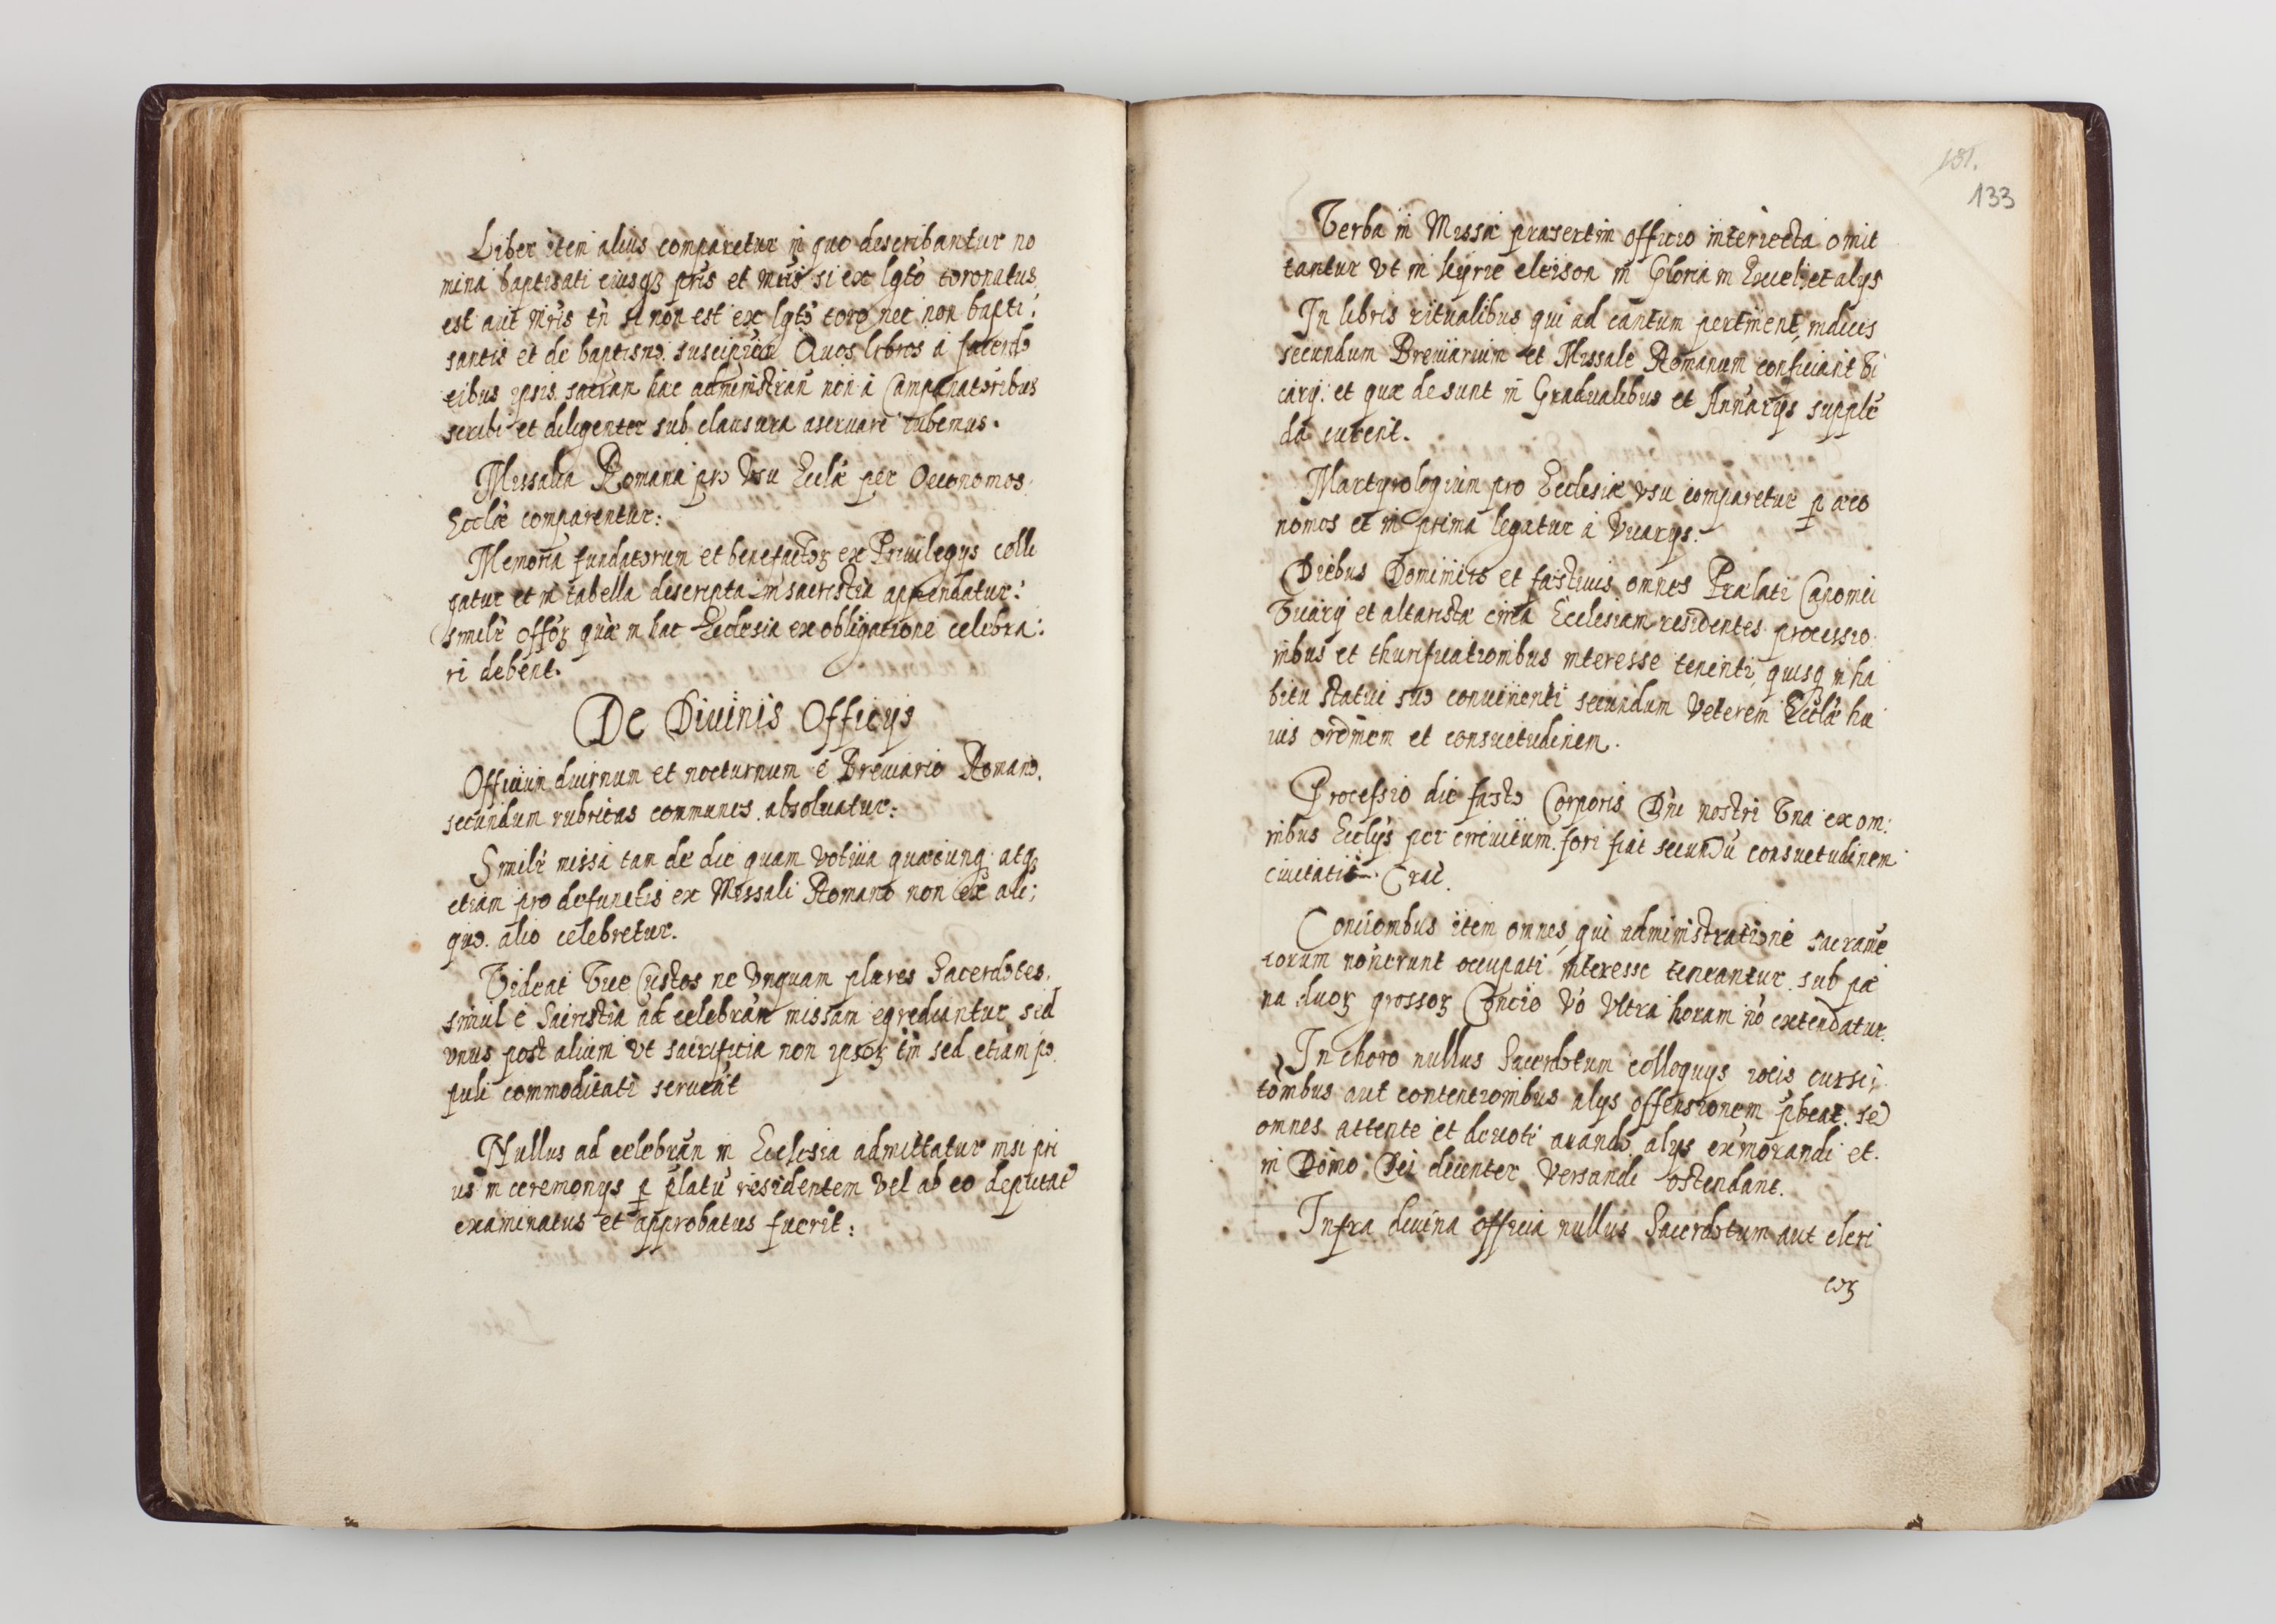 Liber item alius comparetur in quo describantur no
mina baptisati eiusqꝫ pris et mris si ex lgto toro natus
est aut mris tn si non est ex lgto toro nec non bapti:
santis et de baptismo suscipien Quos libros a sacerdo
cibus ipsis sacran hac administran non a Campanatoribus
scribi et diligenter sub clausura aseruare iubemus.
Missalia Romana pro vsu Eccłæ per Oeconomos
Ecclæ comparentur:
Memoria fundatorum et benefactoꝝ ex Priuilegys colli
gatur et in tabella descripta in sacristia appendatur:
similr offoꝝ quæ in hac Ecclesia ex obligatione celebra:
ri debent.
De Diuinis Officys
Officiun diurnum et nocturnum e Breuiario Romano
secundum rubricas communes absoluatur:
Similr missa tam de die quam votiua quæcunqꝫ atqꝫ
etiam pro defunctis ex Missali Romano non ex ali;
quo alio celebretur.
Videat Vice Custos ne vnquam plures Sacerdotes
simul e Sacristia ad celebran missam egrediantur sed
vnus post alium vt sacrificia non ipsoꝝ tm sed etiam po
puli commoditati seruent
Nullus ad celebran in Ecclesia admittatur nisi pri
us in ceremonys ꝑ platu residentem vel ab eo deputat
examinatus et approbatus fuerit:
131.
133
Verba in Missæ præsertim officio interiecta omit
tantur vt in kyrie eleison in Gloria in Excel: et alys
In libris ritualibus qui ad cantum pertinent, indices
secundum Breuiarium et Missale Romanum conficiant Vi
carij et quæ desunt in Gradualibus et Annarys supplē
da curent.
Martyrologium pro Ecclesiæ vsu comparetur ꝑ œco
nomos et in prima legatur a Vicarys.
Diebus Dominicis et fæstiuis omnes Prælati Canonici
Vicarij et altaristæ circa Ecclesiam residentes processio
nibus et thurificationibus interesse tenenti, quisqꝫ in ha
bitu statui suo conuinenti secundum veterem Ecclæ hu
ius ordinem et consuetudinem.
Processio die fæsto Corporis Dni nostri Vna ex om:
nibus Ecclys per circuitum fori fiat secundū consuetudinem
ciuitatis Crac
Concionibus item omnes qui administratione sacrame
torum non erunt occupati interesse teneantur sub pæ
na duoꝝ grossoꝝ Concio vo vltra horam nō extendatur
In choro nullus Sacerdotum colloquys iocis cursi;
tonibus aut contentionibus alys offensionem pbeat. sed
omnes attente et deuote orando alys exmorandi et
in Domo Dei decenter versandi ostendant.
Infra diuina officia nullus Sacerdotum aut cleri
coꝝ